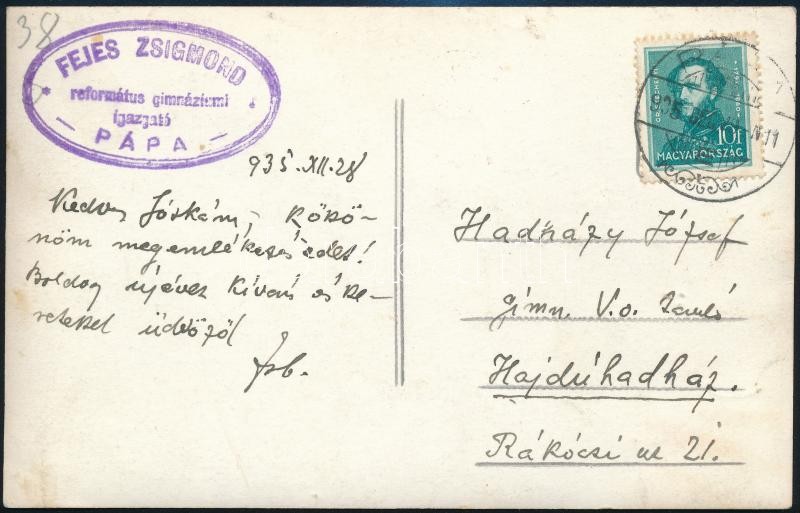 38
FEJES ZSIGMOND
református gimnáziumi
igazgató
PÁPA
935.XII.28
Kedves Jóskám, Köszö-
nöm megemlékezésedet!
Boldog újévet kíván és sze-
retettel üdvözöl
GR. SZÉCHENYI
10f
MAGYARORSZÁG
Hadházy József
gimn. V. o. tanuló
Hajdúhadház.
Rákóczi u 21.